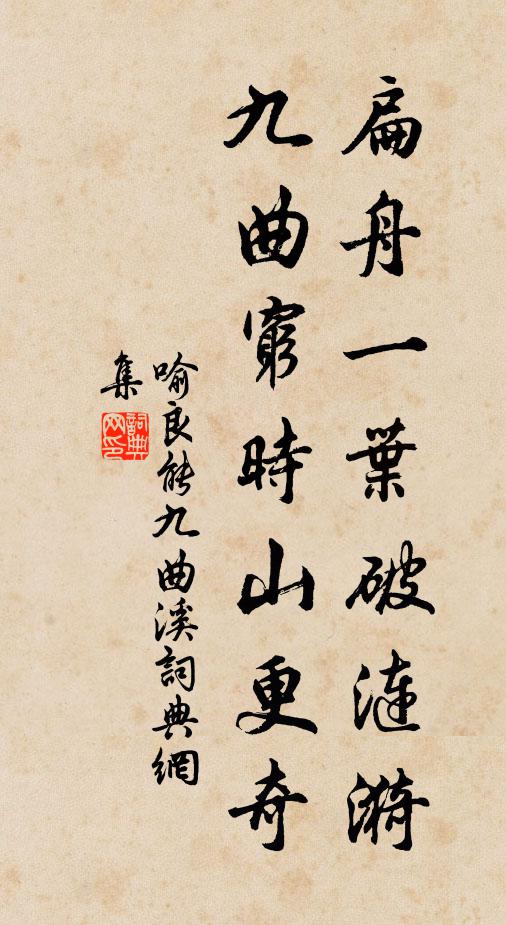 扁舟一葉破漣漪
九曲窮時山更奇
喻良能九曲溪詞典網
集
詞典網印